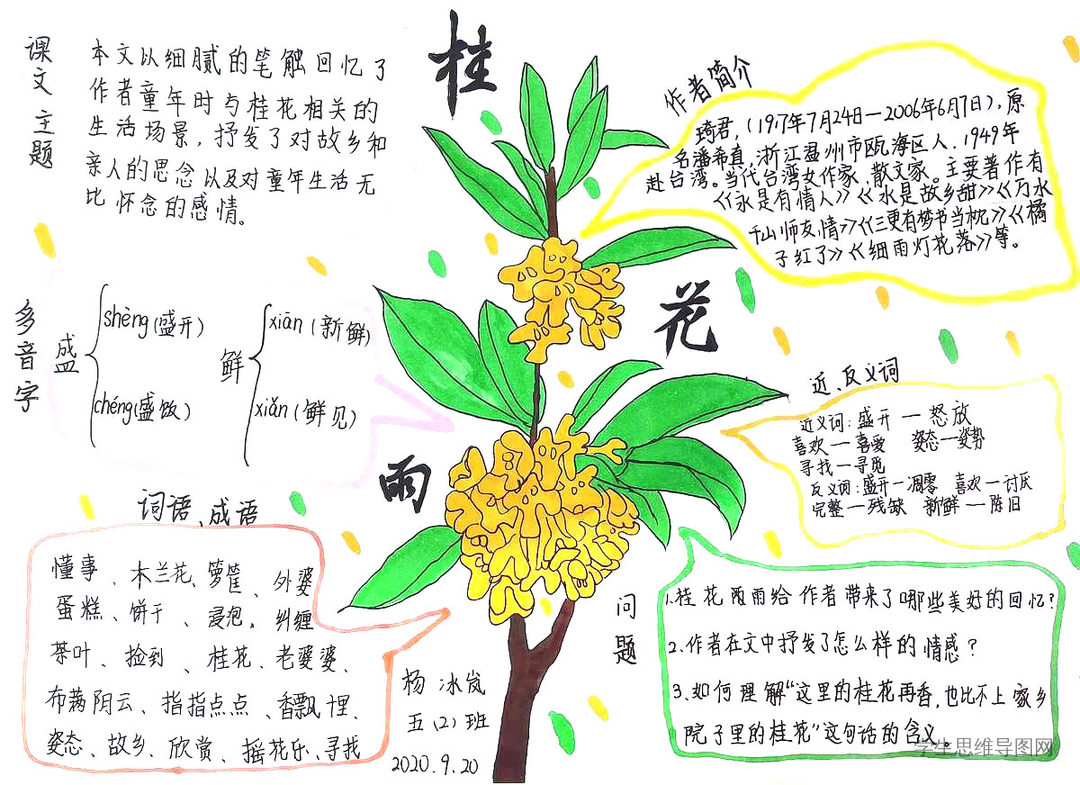 桂
花
雨
课文主题
本文以细腻的笔触回忆了
作者童年时与桂花相关的
生活场景，抒发了对故乡和
亲人的思念以及对童年生活无
比怀念的感情。
作者简介
琦君，(1917年7月24日—2006年6月7日)，原
名潘希真，浙江温州市瓯海区人．1949年
赴台湾。当代台湾女作家、散文家。主要著作有
《永是有情人》《水是故乡甜》《万水
千山师友情》《三更有梦书当枕》《橘
子红了》《细雨灯花落》等。
多音字
盛
shèng(盛开)
chéng(盛饭)
鲜
xiān(新鲜)
xiǎn(鲜见)
近、反义词
近义词：盛开—怒放
喜欢—喜爱 姿态—姿势
寻找—寻觅
反义词：盛开—凋零 喜欢—讨厌
完整—残缺 新鲜—陈旧
词语、成语
懂事、木兰花、箩筐、外婆
蛋糕、饼干、浸泡。纠缠
茶叶、捡到、桂花、老婆婆、
布满阴云、指指点点、香飘十里、
姿态、故乡、欣赏、摇花乐、寻找
问题
1.桂花雨给作者带来了哪些美好的回忆？
2.作者在文中抒发了怎么样的情感？
3.如何理解“这里的桂花再香，也比不上家乡
院子里的桂花”这句话的含义。
杨冰岚
五(2)班
2020.9.20
学生思维导图网